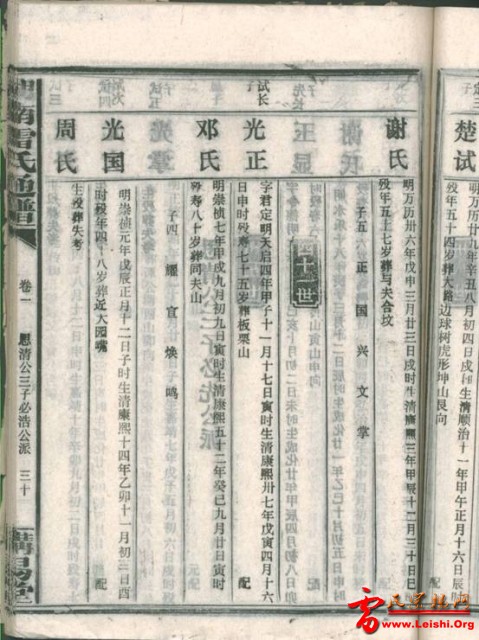 定三
子
楚试
明万历廿九年辛丑八月初四日戌时生清顺治十一年甲午正月十六日辰时
殁年五十四岁葬大路边球树虎形坤山艮向
配
谢氏
明万历卅六年戊申三月廿三日戌时生清康熙三年甲辰十二月三十日巳
殁年五十七岁葬与夫合坟
子五 正 国 兴 文 掌
四十一世
试长
子
光正
字君定明天启四年甲子十一月十七日寅时生清康熙卅七年戊寅四月十六
日申时殁寿七十五岁葬板栗山
配
邓氏
明崇祯七年甲戌九月初九日寅时生清康熙五十二年癸巳九月廿日寅时
殁寿八十岁葬同夫山
子四 耀 宣 焕 鸣
试次
子
光国
明崇祯元年戊辰正月十二日子时生清康熙十四年乙卯十一月初三日酉
时殁年四十八岁葬近大园嘴
配
周氏
生殁葬失考
雷氏通谱
卷一
恩清公三子必浩公派
三十
雷氏宗亲网
www.Leishi.Org